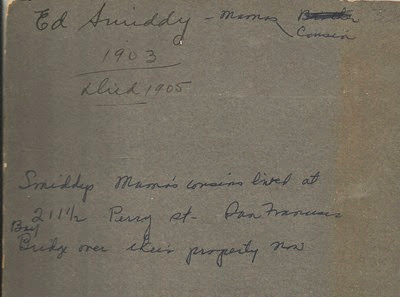 Ed Smiddy - Mamas Brother
Cousin
1903
Died 1905
Smiddys Mama's cousins lived at
211 1/2 Perry st - San Francisco
Bay
Bridge over their property now